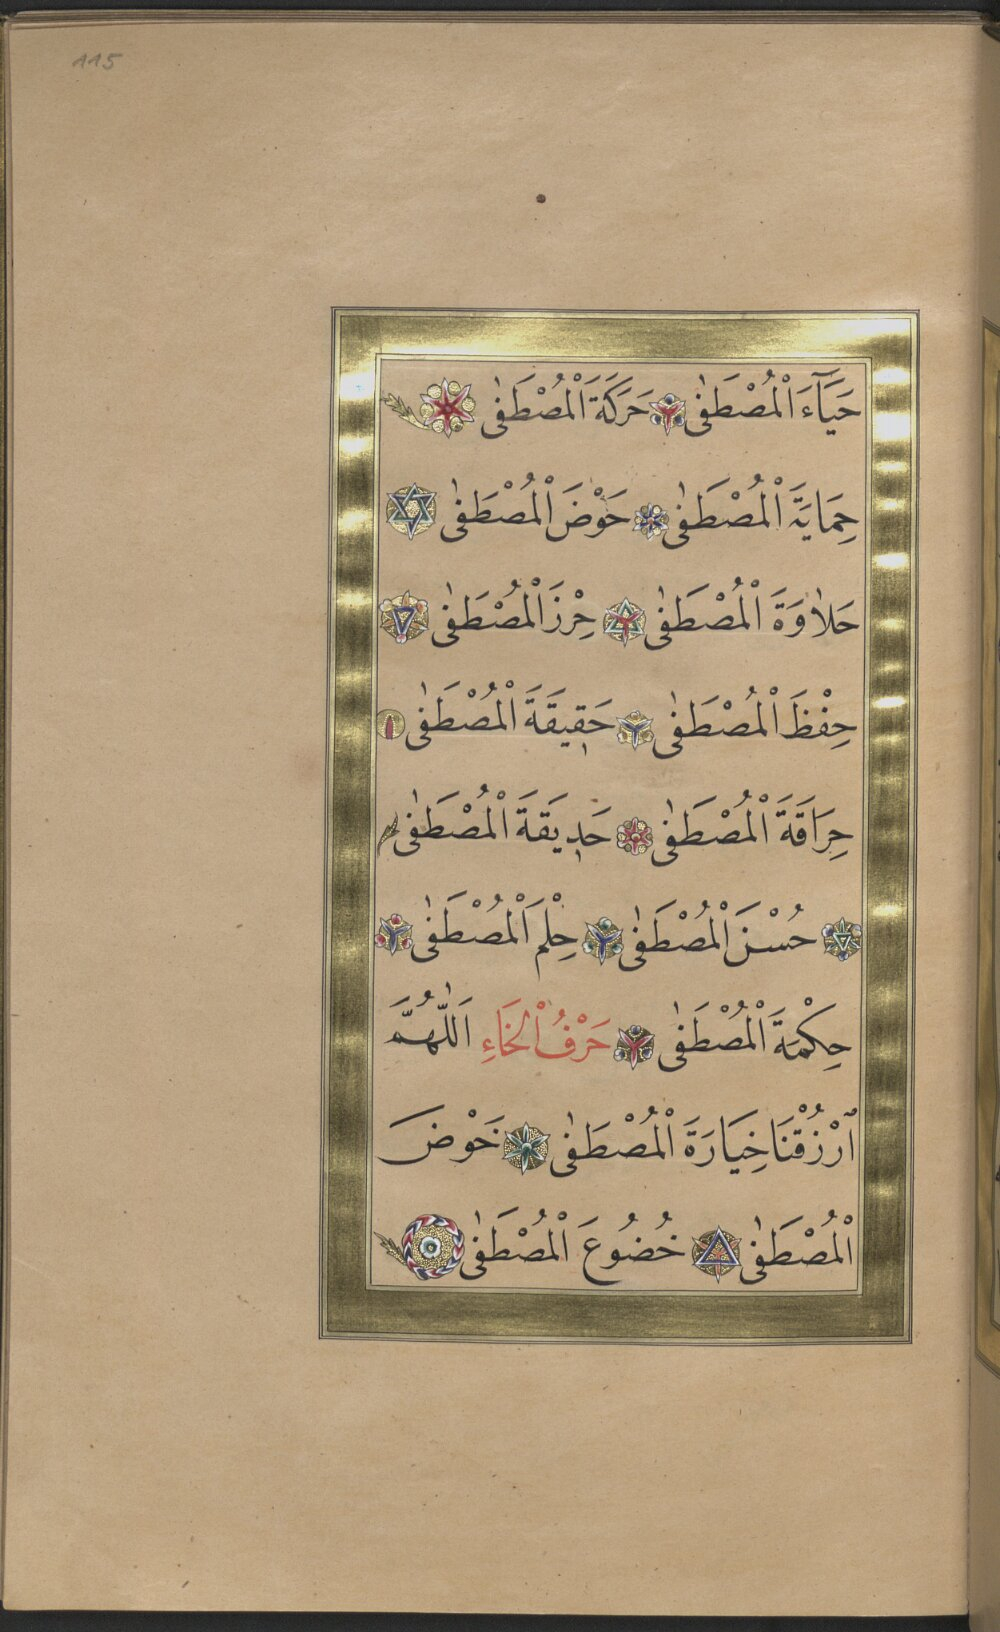 115
حَيَآءَ الْمُصْطَفٰى حَرَكَةَ الْمُصْطَفٰى
حِمَايَةَ الْمُصْطَفٰى حَوْضَ الْمُصْطَفٰى
حَلَاوَةَ الْمُصْطَفٰى حِرْزَ الْمُصْطَفٰى
حِفْظَ الْمُصْطَفٰى حَقِيقَةَ الْمُصْطَفٰى
حِرَاقَةَ الْمُصْطَفٰى حَدِيقَةَ الْمُصْطَفٰى
حُسْنَ الْمُصْطَفٰى حِلْمَ الْمُصْطَفٰى
حِكْمَةَ الْمُصْطَفٰى حَرْفُ الْخَاءِ اَللّٰهُمَّ
ارْزُقْنَا خِيَارَةَ الْمُصْطَفٰى خَوْضَ
الْمُصْطَفٰى خُضُوعَ الْمُصْطَفٰى